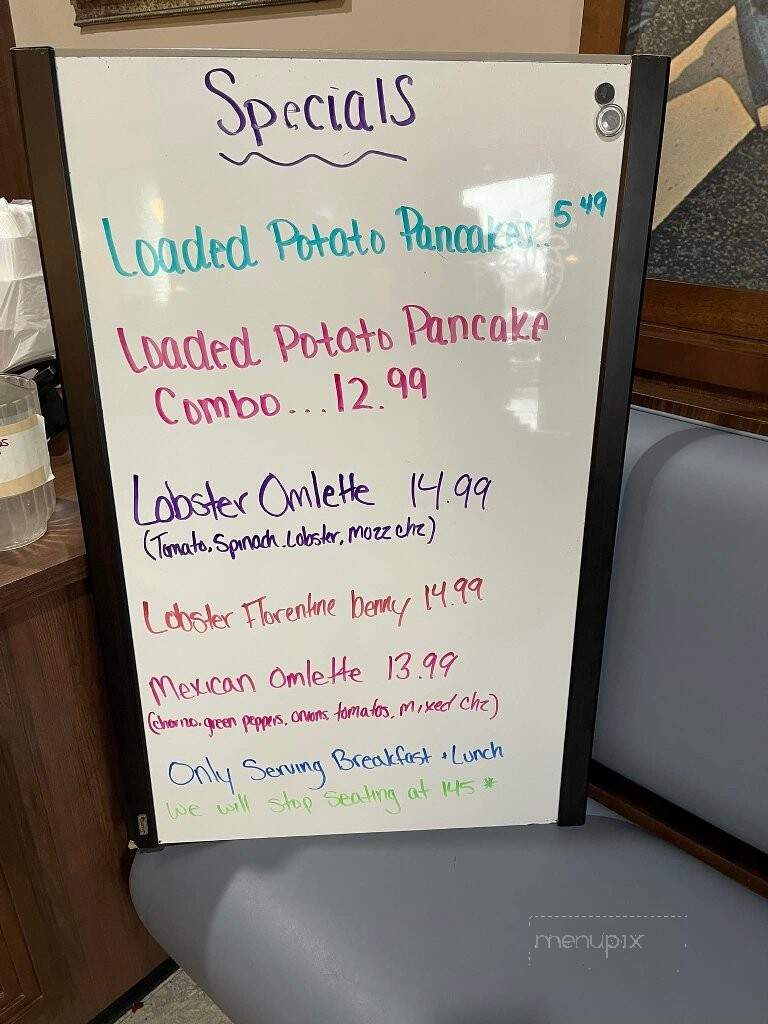 Specials
Loaded Potato Pancakes..5 49
Loaded Potato Pancake
Combo...12.99
Lobster Omlette 14.99
(Tomato, Spinach, Lobster, mozz chz)
Lobster Florentine benny 14.99
Mexican Omlette 13.99
(chorizo, green peppers, onions, tomatos, mixed chz)
Only Serving Breakfast + Lunch
We will stop Seating at 145 *
menupix